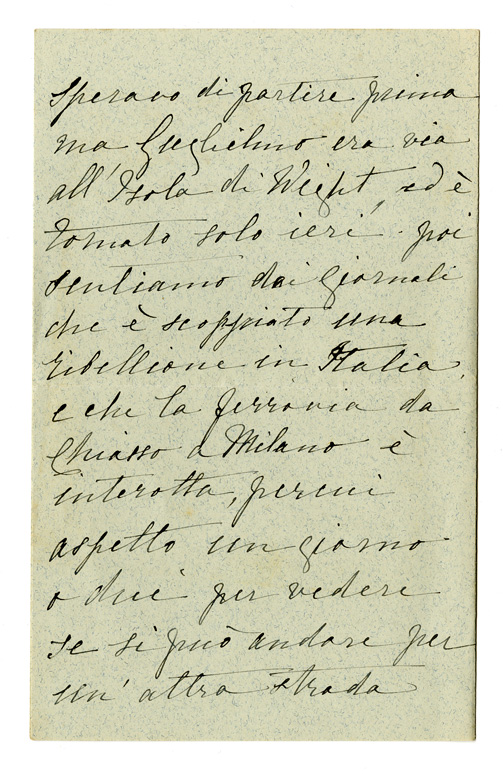 Speravo di partire prima
ma Guglielmo era via
all'Isola di Weight, ed è
tornato solo ieri poi
sentiamo dai giornali
che è scoppiato una
ribellione in Italia,
e che la ferrovia da
Chiasso a Milano è
interotta, percui
aspetto un giorno
o due per vedere
se si può andare per
un' altra strada